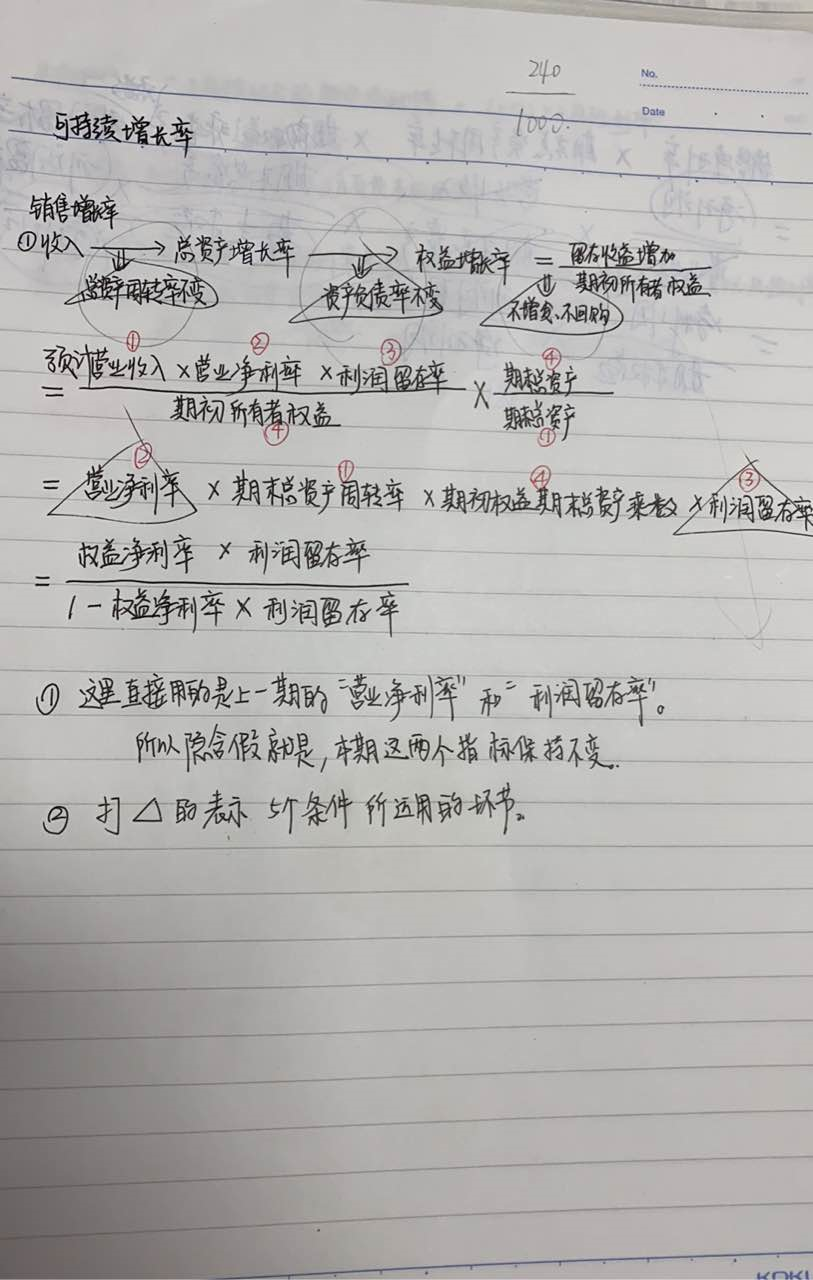 240
1000.
No.
Date
可持续增长率
销售增长率
①收入 → 总资产增长率 → 权益增长率 = 留存收益增加
期初所有者权益
总资产周转率不变 资产负债率不变 不增发、不回购
① ② ③ ④
预计营业收入 × 营业净利率 × 利润留存率 × 期末总资产
= 期初所有者权益 期末总资产
④ ①
② ① ④ ③
= 营业净利率 × 期末总资产周转率 × 期初权益期末总资产乘数 × 利润留存率
权益净利率 × 利润留存率
=
1 - 权益净利率 × 利润留存率
① 这里直接用的是上一期的“营业净利率”和“利润留存率”。
所以隐含假就是,本期这两个指标保持不变。
② 打△的表示 5个条件所运用的环节。